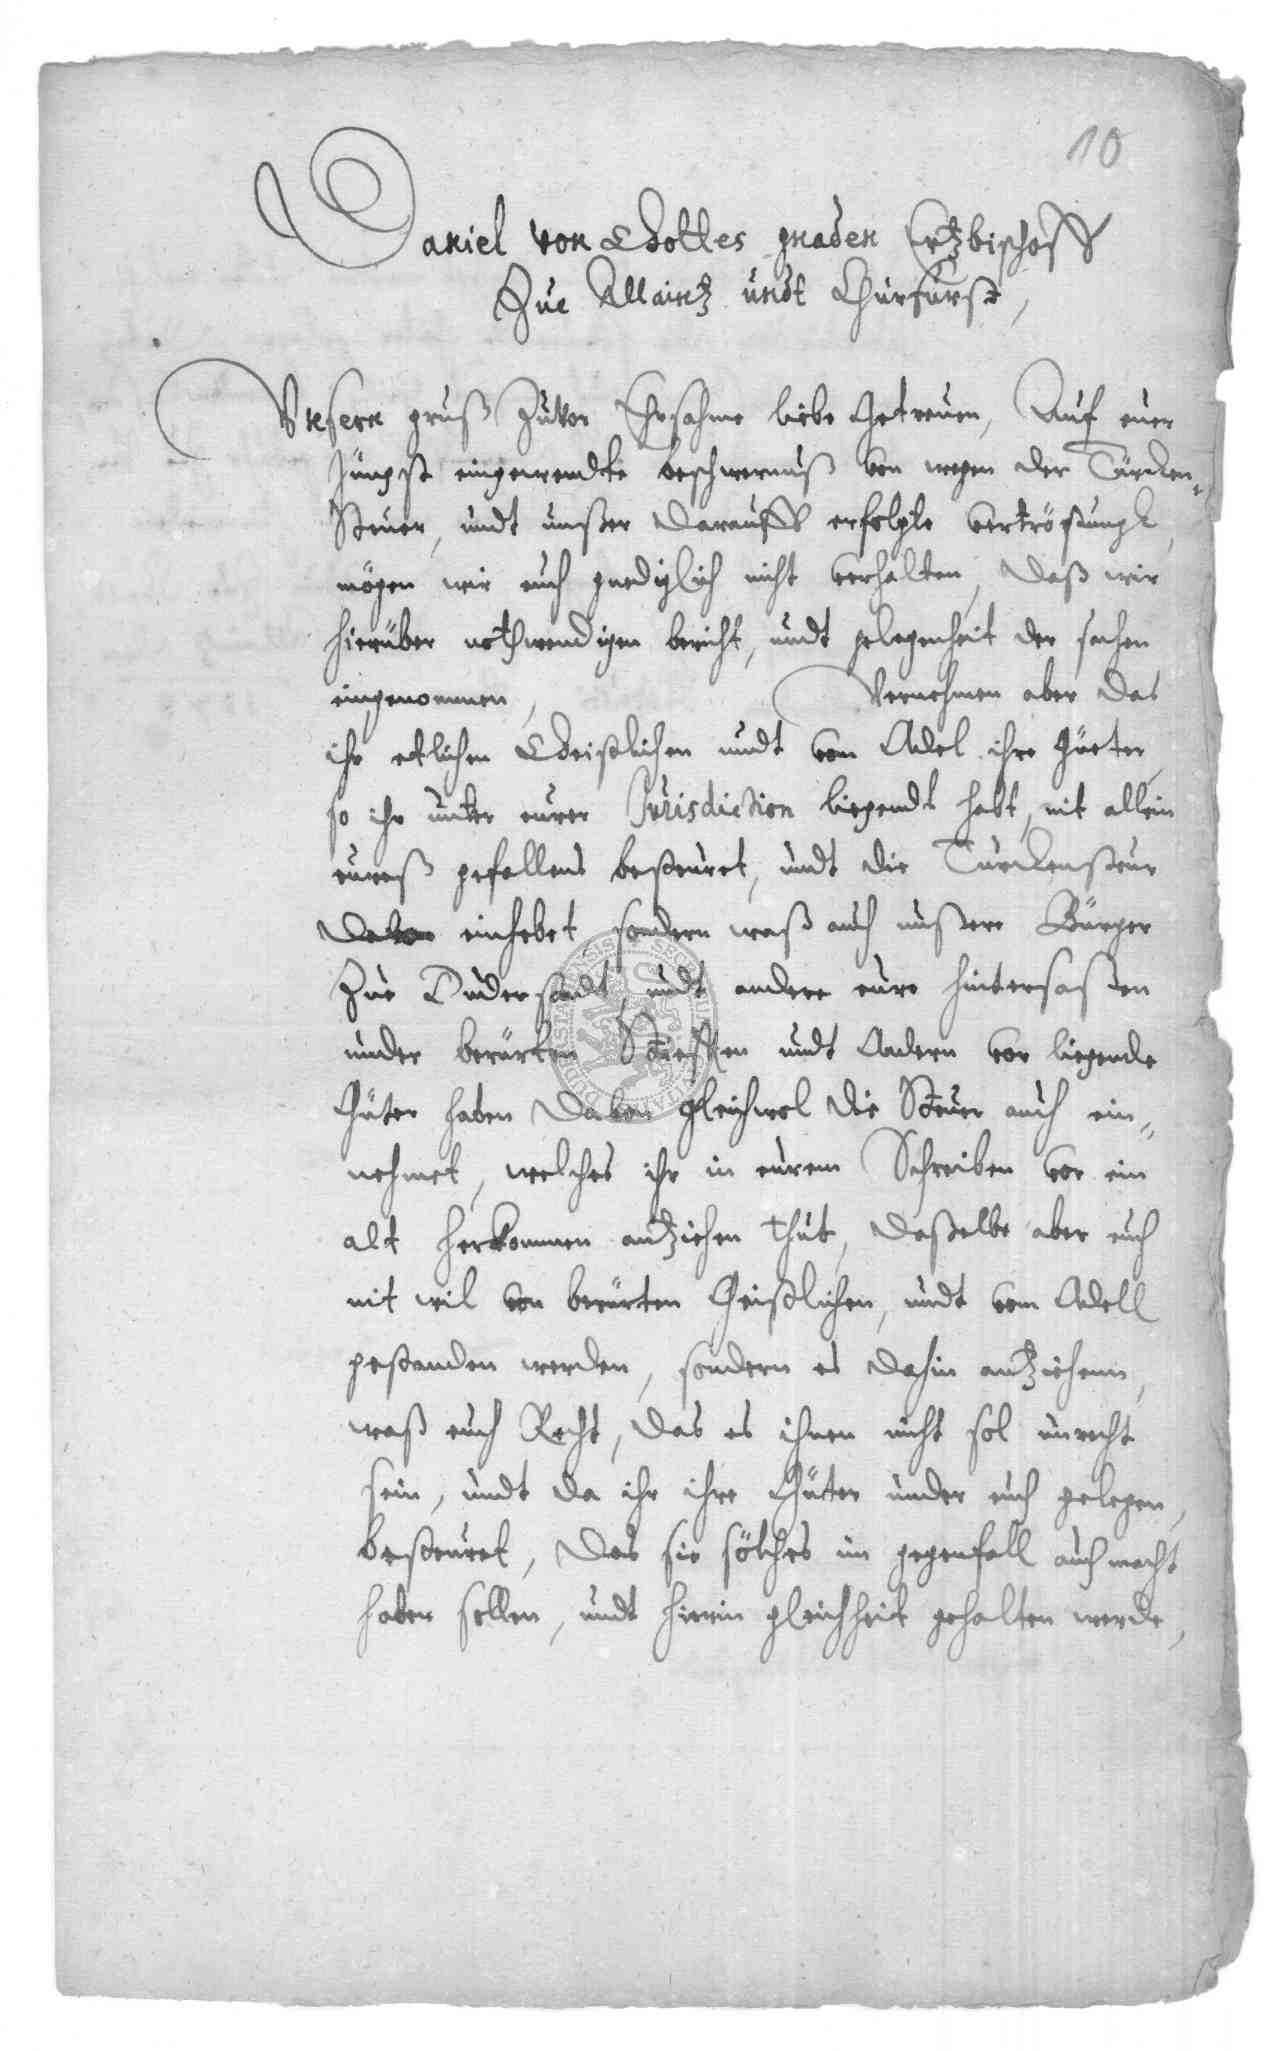 10
Daniel von Gottes gnaden Ertzbischoff
Zue Maintz undt Churfürst,
Unsern gruß zuvor Ehrsahme liebe Getreuen, Auf euer
Jüngst eingewendte beschwernuß von wegen der Türcken-
Steuer, undt unßer darauff erfolgte vertröstungk,
mögen wir euch gnediglich nicht verhalten, daß wir
hierüber nothwendigen bericht, undt gelegenheit der sachen
eingenommen, Vernehmen aber das
ihr etlichen Geistlichen undt von Adel ihre Güeter,
so ihr unter eurer Jurisdiction liegendt habt, nit allein
eureß gefallens besteuret, undt die Türckensteur
davon einhebet, sondern waß auch unßere Bürger
Zue Duderstadt, undt andere eure hintersaßen
under berürten Geistlichen undt Andern vor liegende
Güter haben davon gleichwol die Steuer auch ein-
nehmet, welches ihr in eurem Schreiben vor ein
alt herkommen antziehen thut, daßelbe aber euch
nit wil von berürten Geistlichen, undt vom Adell
gestanden werden, sondern es dahin antziehenn,
waß euch Recht, das es ihnen nicht sol unrecht
sein, undt da ihr ihre Güter under euch gelegen,
besteuret, das sie sölches im gegenfall auch macht
haben sollen, undt hierin gleichheit gehalten werde,